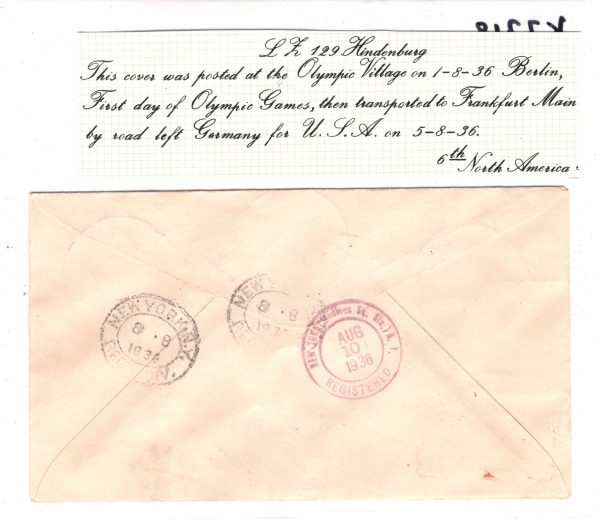 L Z 129 Hindenburg
This cover was posted at the Olympic Village on 1-8-36 Berlin,
First day of Olympic Games, then transported to Frankfurt Main
by road left Germany for U.S.A. on 5-8-36.
6th North America.
NEW YORK N.Y.
8 8
1936
NEW YORK
8 8
193
NEW YORK, Sta.) N. Y.
AUG
10
1936
REGISTERED